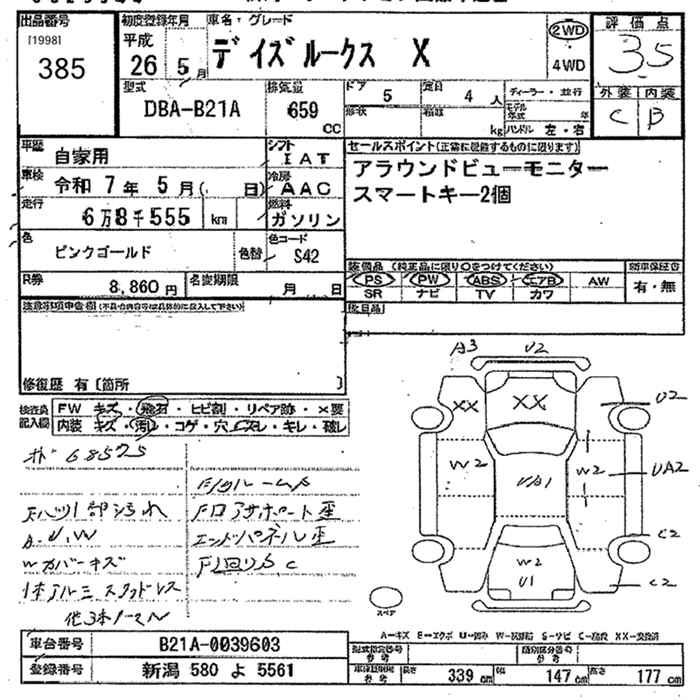 出品番号
[1998]
385
初度登録年月
平成
26 5月
車名・グレード
デイズルークス X
2WD
4WD
評価点
3.5
外装 内装
C B
型式
DBA-B21A
排気量
659
CC
ドア
5
定員
4 人
形状
積載
kg
ディーラー・並行
モデル年式 年
ハンドル 左・右
車歴
自家用
シフト
IAT
車検
令和 7年 5月( 日)
冷房
AAC
走行
6万8千555 km
燃料
ガソリン
色
ピンクゴールド
色替
色コード
S42
R券
8,860円
名変期限
月 日
セールスポイント(正常に機能するものに限ります)
アラウンドビューモニター
スマートキー2個
装備品 (純正品に限り○をつけてください)
PS PW ABS エアB AW
SR ナビ TV カワ
新車保証書
有・無
後日品
注意事項申告欄
修復歴 有 〔箇所 〕
検査員記入欄
FW キズ・飛石・ヒビ割・リペア跡・×要
内装 キズ・汚レ・コゲ・穴・スレ・キレ・破レ
68525
内ハリ部汚れ
A.U.W
Wカバーキズ
1本アルミスタッドレス
他3本ノーマル
Fフロアサポート歪
エンドパネル歪
F廻りS C
A3
U2
XX
XX
U2
W2
U/A1
W2
UA2
C2
W2
U1
C2
スペア
A-キズ E-エクボ U-凹み W-波跡 S-サビ C-腐食 XX-交換済
車台番号
B21A-0039603
登録番号
新潟 580 よ 5561
型式指定番号
参考
類別区分番号
参考
長さ 339 cm
幅 147 cm
高さ 177 cm